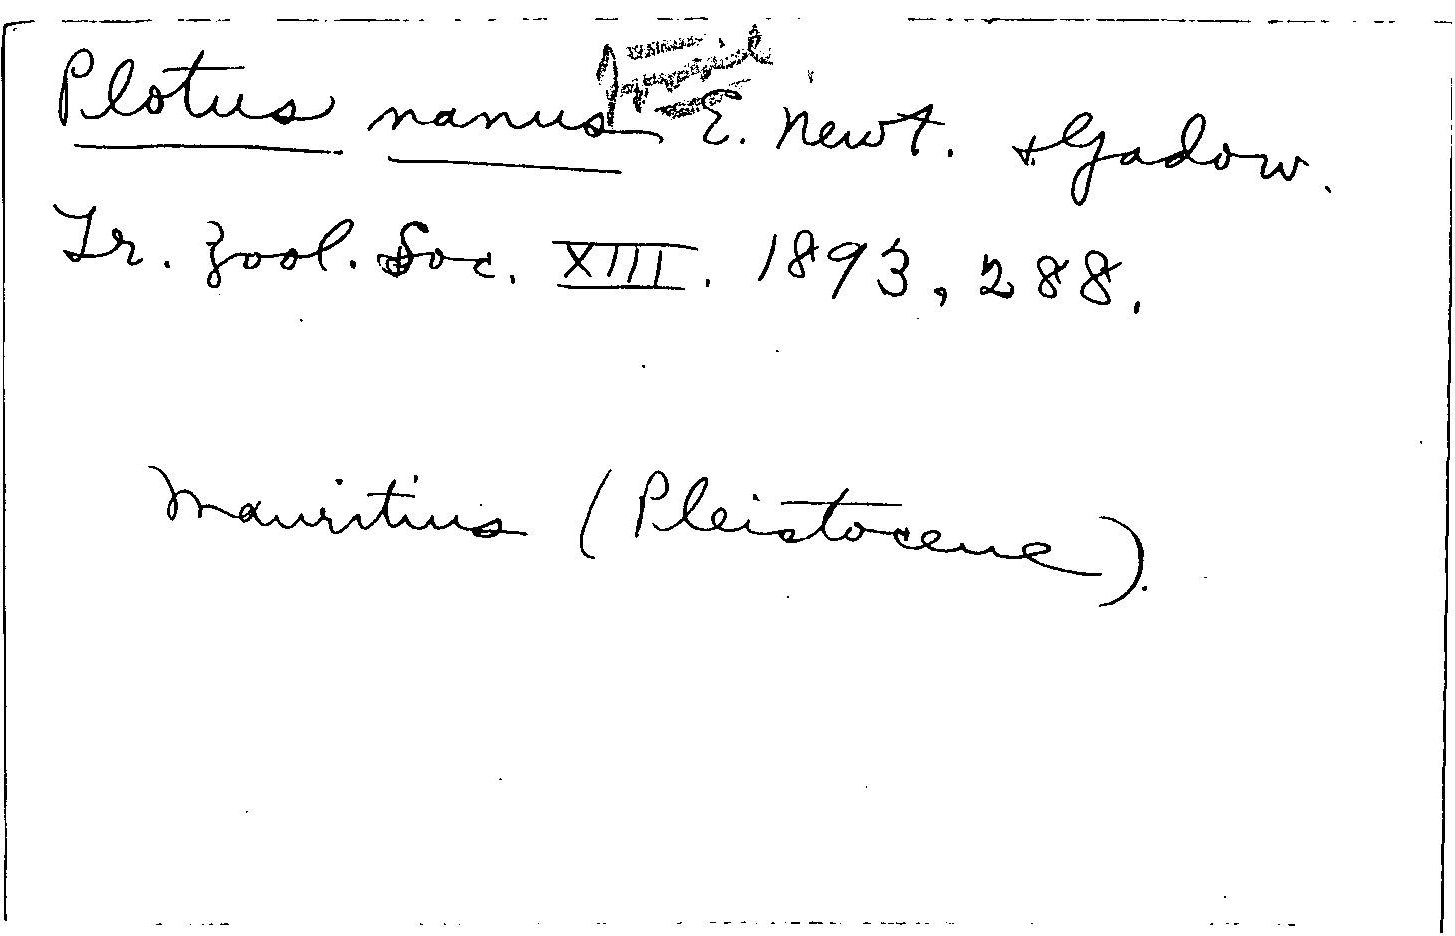 Plotus nanus E. Newt. & Gadow.
Tr. Zool. Soc. XIII. 1893, 288.
Mauritius (Pleistocene).